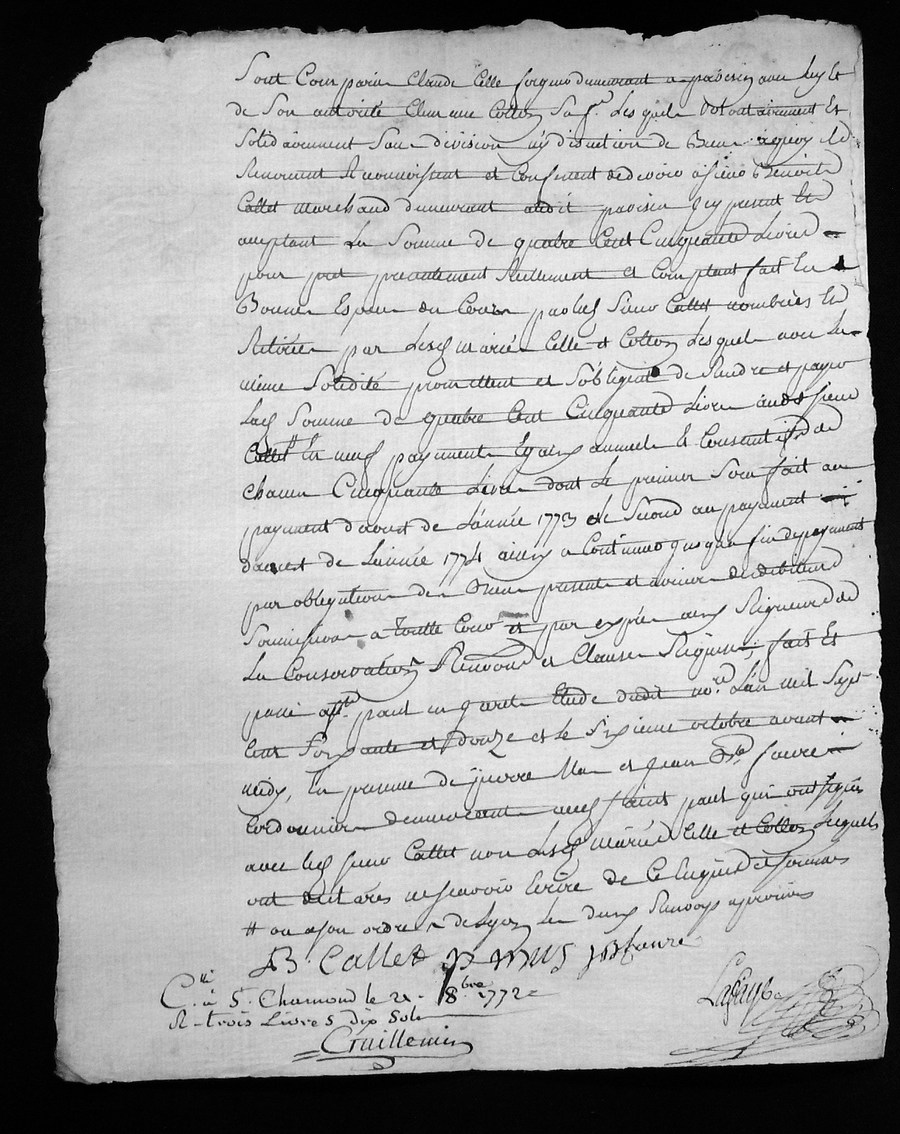 Sont Comparu Claude Celle forgeur demeurant a pavesin avec luy et
de Son autorité Clemence Collon Sa f.e Lesquels Volontairement Et
Solidairement Sans division ny discution de Biens aquoy ils
Renoncent Reconnoissent et Confessent de devoir à sieur Benoit
Callet marchand demeurant audit pavesin Icy present Et
aceptant La Somme de quatre Cent Cinquante Livres
pour pret presentement Reellement et Comptant fait En
Bonnes Especes du Cours par led Sieur Callet nombrées Et
Retirées par Lesd mariés Celle et Collon Lesquels avec La
même Solidité promettent et S'obligent de Rendre et payer
Lad Somme de quatre Cent Cinquante Livres aud sieur
Callet # En neuf payments Egaux annuels et Consecutifs de
chacun Cinquante Livres dont Le premier Sera fait au
payment d'aoust de L'année 1773 et le Second au payment
d'aoust de L'année 1774 ainsy a Continuer jusqua fin de payment
par obligation de Biens presents et avenir des debiteurs
Soumission a Toutte Cour et par exprés aux Rigueurs de
La Conservation Renoncé et Clauses Requises, fait Et
passé a St paul en jarets Etude dudit no.re L'an mil Sept
Cent Soixante et Douze et le Sixieme octobre avant
midy, En presence de pierre Mus et Jean B.te faure
Cordonnier demeurant aud Saint paul qui ont signés
avec led sieur Callet non Lesd mariés Celle et Collon Lesquels
ont declarés ne sçavoir Ecrire de Ce Enquis et sommés
# ou a son ordre de Lyon Les deux Renvoys aprouvés
B Callet p mus JB faure
C.llé à St. Chamond le 21 8bre 1772
R. trois Livres dix Sols
Lafayë
Cruillemin